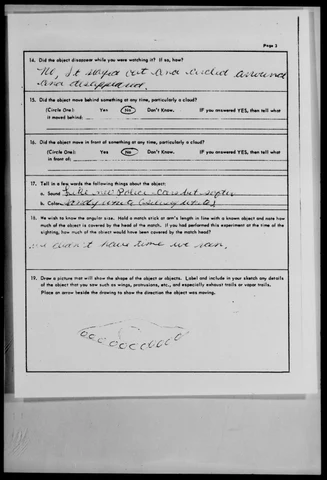 Page 3
14. Did the object disappear while you were watching it? If so, how?
No, It stayed out and circled around
and disappeared.
15. Did the object move behind something at any time, particularly a cloud?
(Circle One): Yes No Don't Know. IF you answered YES, then tell what
it moved behind:
16. Did the object move in front of something at any time, particularly a cloud?
(Circle One): Yes No Don't Know. IF you answered YES, then tell what
in front of:
17. Tell in a few words the following things about the object:
a. Sound like the Police Car but softer
b. Color white
18. We wish to know the angular size. Hold a match stick at arm's length in line with a known object and note how
much of the object is covered by the head of the match. If you had performed this experiment at the time of the
sighting, how much of the object would have been covered by the match head?
we didn't have time we ran.
19. Draw a picture that will show the shape of the object or objects. Label and include in your sketch any details
of the object that you saw such as wings, protrusions, etc., and especially exhaust trails or vapor trails.
Place an arrow beside the drawing to show the direction the object was moving.